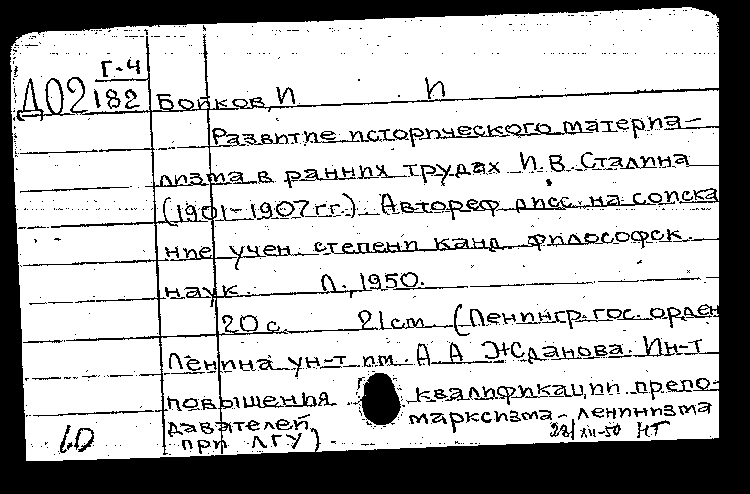 Г-4
Д02 182
Бойков, И И
Развитие исторического материа-
лизма в ранних трудах И. В. Сталина
(1901-1907 гг.). Автореф дисс. на соиска
ние учен. степени канд. философск.
наук. Л., 1950.
20 с. 21 cm (Ленингр. гос. орден
Ленина ун-т им. А А Жданова. Ин-т
повышения квалификации препо-
давателей марксизма-ленинизма
при ЛГУ).
28/XII-50 НТ